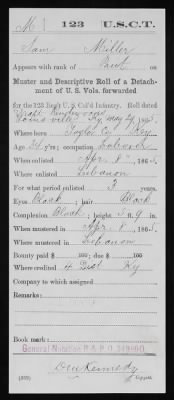 M | 123 | U.S.C.T.
Sam Miller
Appears with rank of Pvt on
Muster and Descriptive Roll of a Detach-
ment of U. S. Vols. forwarded
for the 123 Reg't U. S. Col'd Infantry. Roll dated
Draft Rendezvous
Louisville Ky May 24, 1865.
Where born Taylor Co Key
Age 34 y'rs; occupation
When enlisted Apr 8, 1865.
Where enlisted Lebanon
For what period enlisted 3 years.
Eyes Black; hair Black
Complexion Black; height 5 ft. 9 in.
When mustered in Apr 8, 1865.
Where mustered in Lebanon
Bounty paid $ 100; due $ 100
Where credited 4 Dist Ky
Company to which assigned
Remarks:
Book mark:
General Notation R & P O
Kennedy
(339) Copyist.